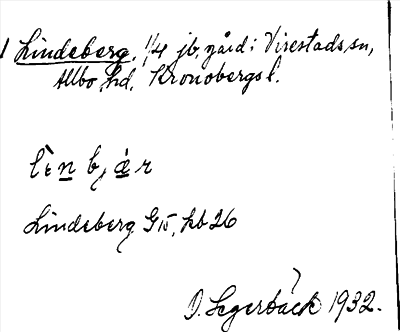 1 Lindeberg, 1/4 jb, gård i Virestads sn,
Allbo hd, Kronobergs l.
lìnbjær
Lindeberg G 15, hb 26
D. Segerbäck 1932.